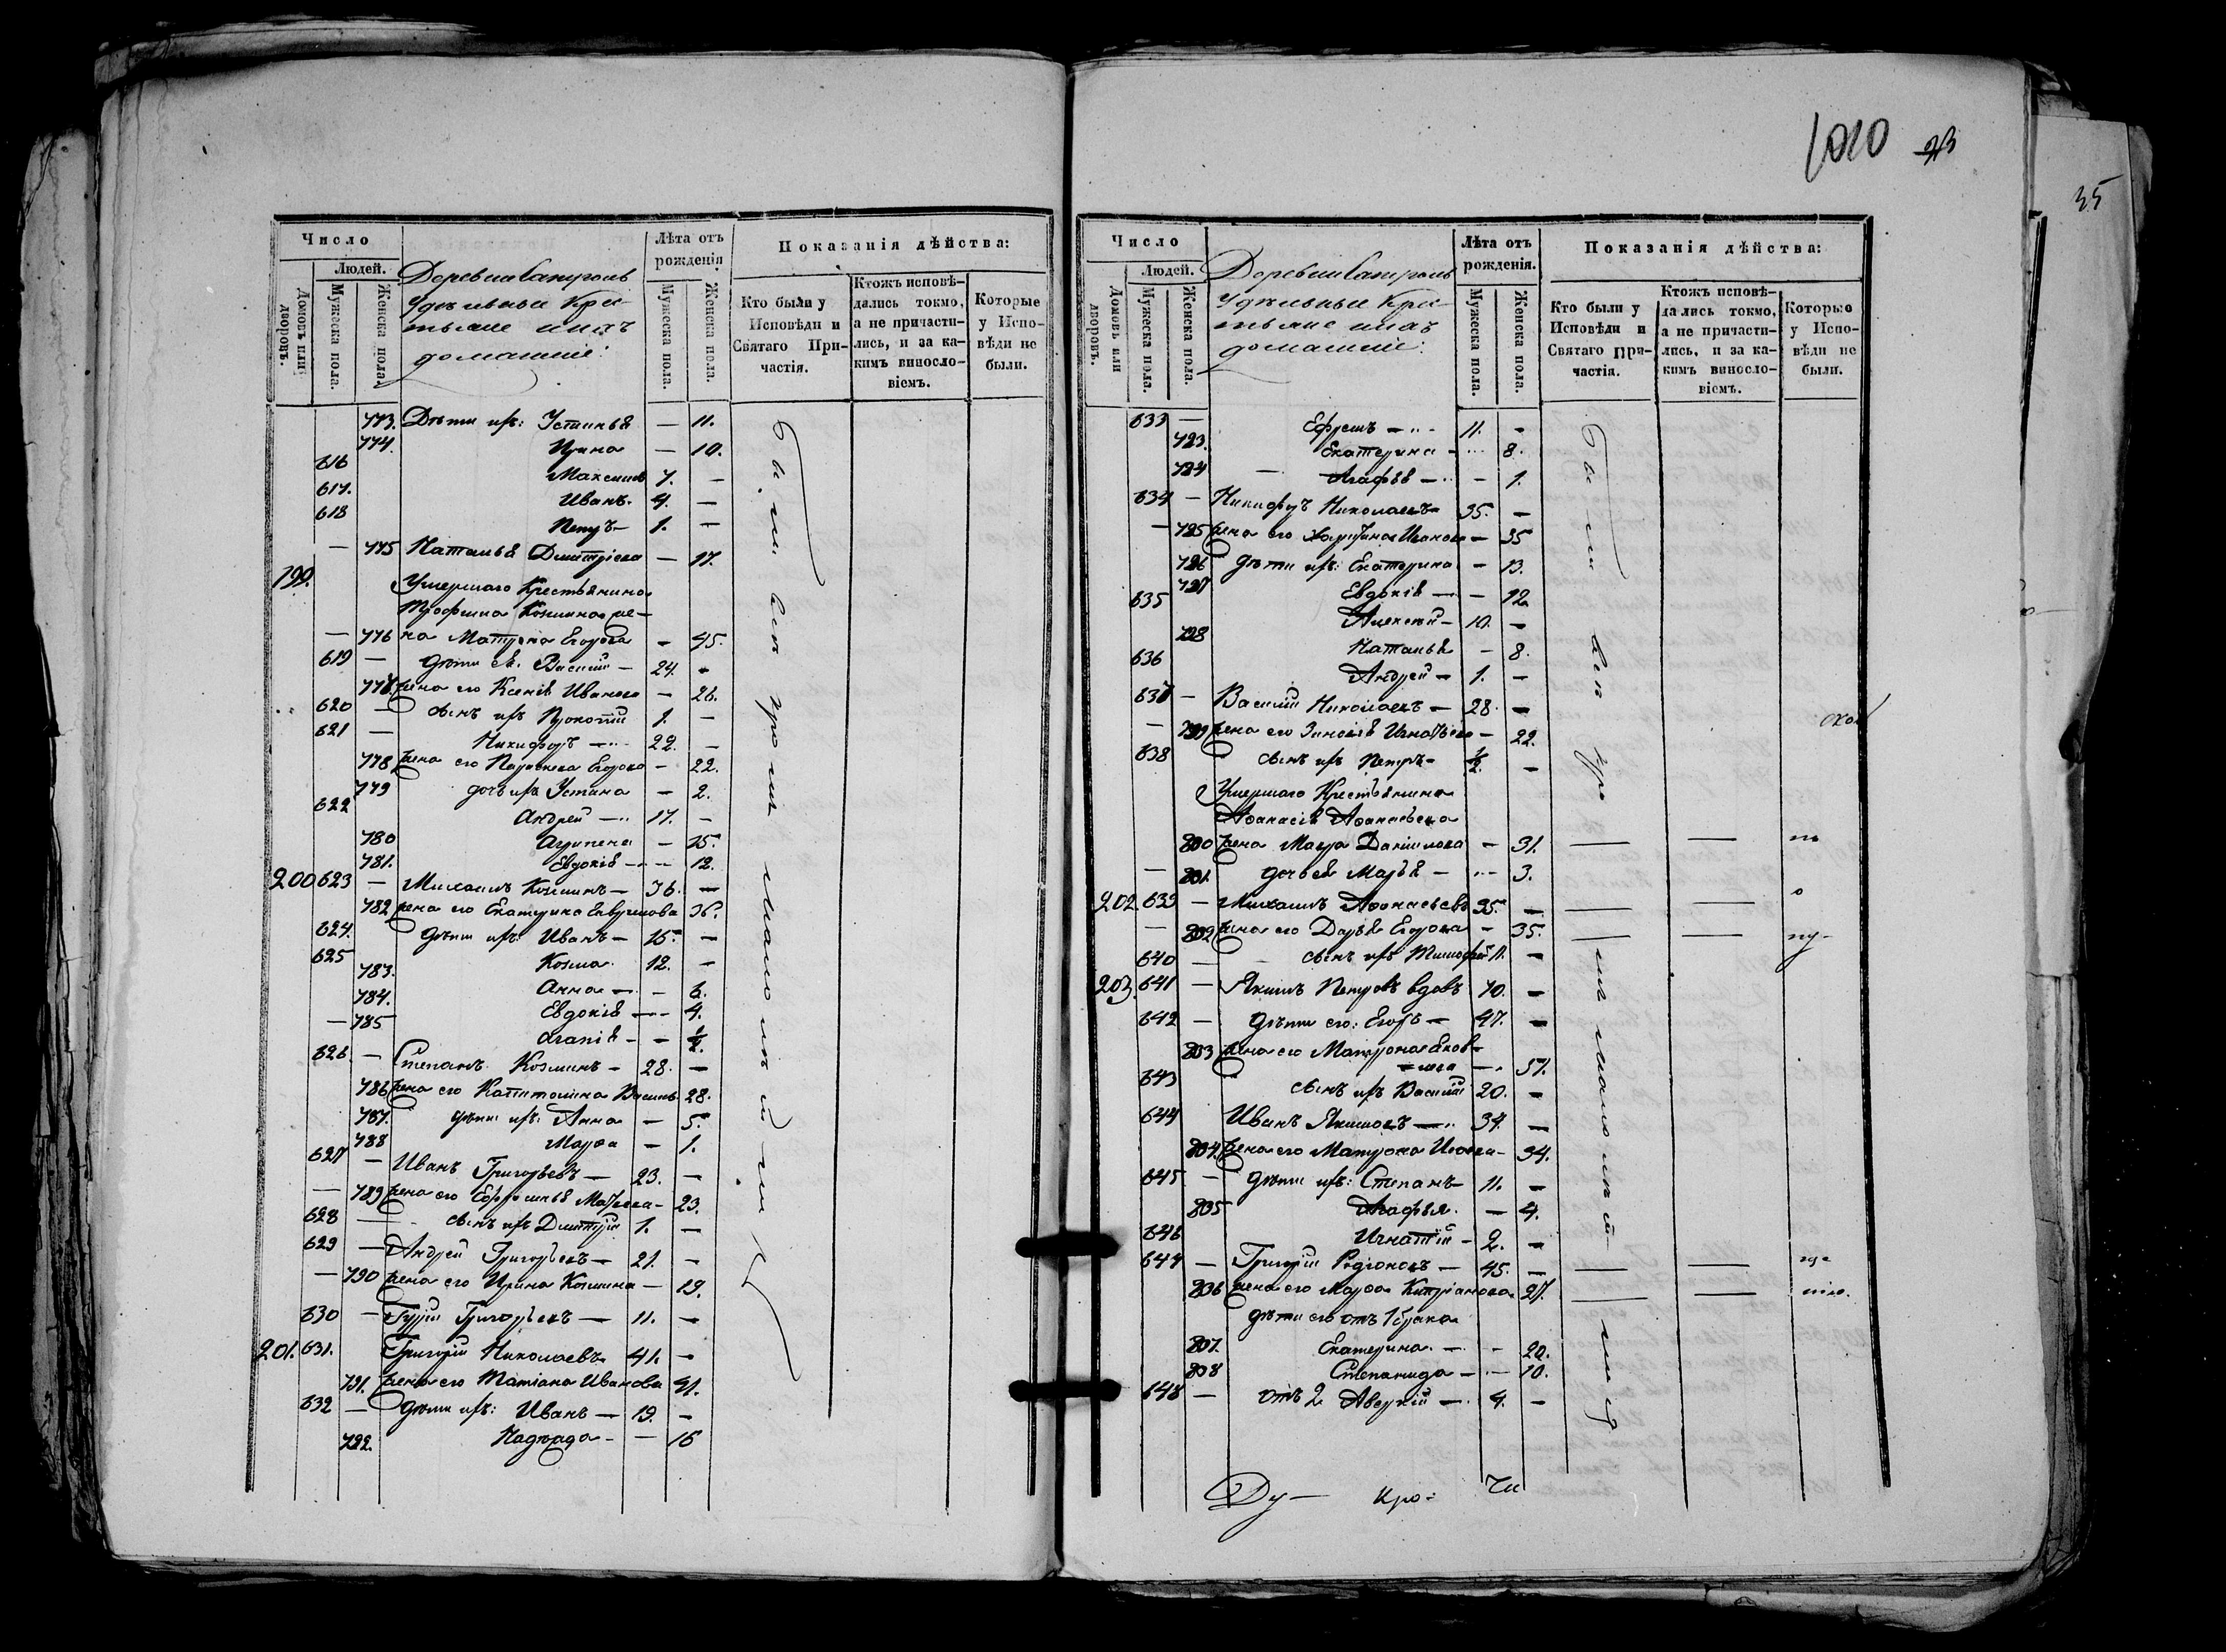 1010
35
Число
Людей.
Домовъ или дворовъ.
Мужеска пола.
Женска пола.
Деревни
Удѣльные Кре-
стьяне ихъ
домашніе:
Лѣта отъ рожденія
Мужеска пола.
Женска пола.
Показанія дѣйства:
Кто были у Исповѣди и Святаго Причастія.
Ктожъ исповѣдались токмо, а не причастились, и за какимъ винословіемъ.
Которые у Исповѣди не были.
773. Дѣти ихъ: Устинья — 11.
774. Ирина — 10.
616 Максимъ 7. —
617. Иванъ 4. —
618 Петръ 1. —
— 775 Наталья Дмитріева — 17.
199. Умершаго Крестьянина
Трофима Козмина же-
— 776 на Матрона Егорова — 45.
619 — дѣти ея: Василій — 24. —
777. жена его Ксенія Иванова — 26.
620 — сынъ ихъ Прокопій 1. —
621 — Никифоръ — 22. —
778 жена его Параскева Егорова — 22.
779 дочь ихъ Устина — 2.
622 Андрей — 17. —
780 Агрипена — 15.
781. Евдокія — 12.
200 623 — Михаилъ Козминъ — 36. —
782 жена его Екатерина 36.
624. дѣти ихъ: Иванъ — 15. —
625 Козма 12. —
783. Анна — 6.
784. Евдокія — 4.
— 785 — ½.
626. — Степанъ Козминъ — 28. —
786 жена его Капитолина Василь 28.
787. дѣти ихъ: Анна — 5.
788 Марфа — 1.
627 — Иванъ Григорьевъ — 23. —
— 789 жена его 23.
628 — сынъ ихъ Димитрій 1. —
629 — Андрей Григорьевъ — 21. —
— 790 жена его Ирина Козмина — 19.
630 — Гурій Григорьевъ — 11. —
201. 631. Григорій Николаевъ 41. —
791. жена его Татіана Иванова 41.
632 — дѣти ихъ: Иванъ — 19. —
792. Надежда — 16
Число
Людей.
Домовъ или дворовъ.
Мужеска пола.
Женска пола.
Деревни
Удѣльные Кре-
стьяне ихъ
домашніе:
Лѣта отъ рожденія.
Мужеска пола.
Женска пола.
Показанія дѣйства:
Кто были у Исповѣди и Святаго Причастія.
Ктожъ исповѣдались токмо, а не причастились, и за какимъ винословіемъ.
Которые у Исповѣди не были.
633 — Ефремъ — 11. —
793. Екатерина — 8.
794 Агафья — 1.
634 — Никифоръ Николаевъ 35. —
— 795 жена его Иванова — 35
796 дѣти ихъ: Екатерина — 13.
797 Евдокія — 12
635 Алексѣй — 10. —
798 Наталья — 8.
636 Андрей — 1. —
637 — Василій Николаевъ — 28. —
— 799 жена его Зиновія Игнатьева — 22.
638 сынъ ихъ Петръ ½. —
Умершаго Крестьянина
Афанасія Афанасьева
800 жена Мавра Данилова — 31.
— 801. дочь ея Марья — 3.
202. 639 — Михаилъ Афонасьевъ 35. —
— 802 жена его Дарья Егорова — 35.
640 — сынъ ихъ Тимофей 11. —
203. 641 — Якимъ Петровъ вдовъ 70. —
642 — дѣти его: Егоръ — 47. —
803 жена его Матрона Яков-
лева — 57.
643 сынъ ихъ Василій 20. —
644 Иванъ Якимовъ — 34. —
804. жена его Матрона — 34.
645 — дѣти ихъ: Степанъ 11. —
805 Агафья — 4.
646 Игнатій — 2. —
647 — Григорій Родіоновъ — 45. —
806 жена его Марфа Кипріанова 27.
дѣти его отъ 1 брака
807. Екатерина — 20.
808 Степанида — 10.
648 — отъ 2 Аверкій — 4. —